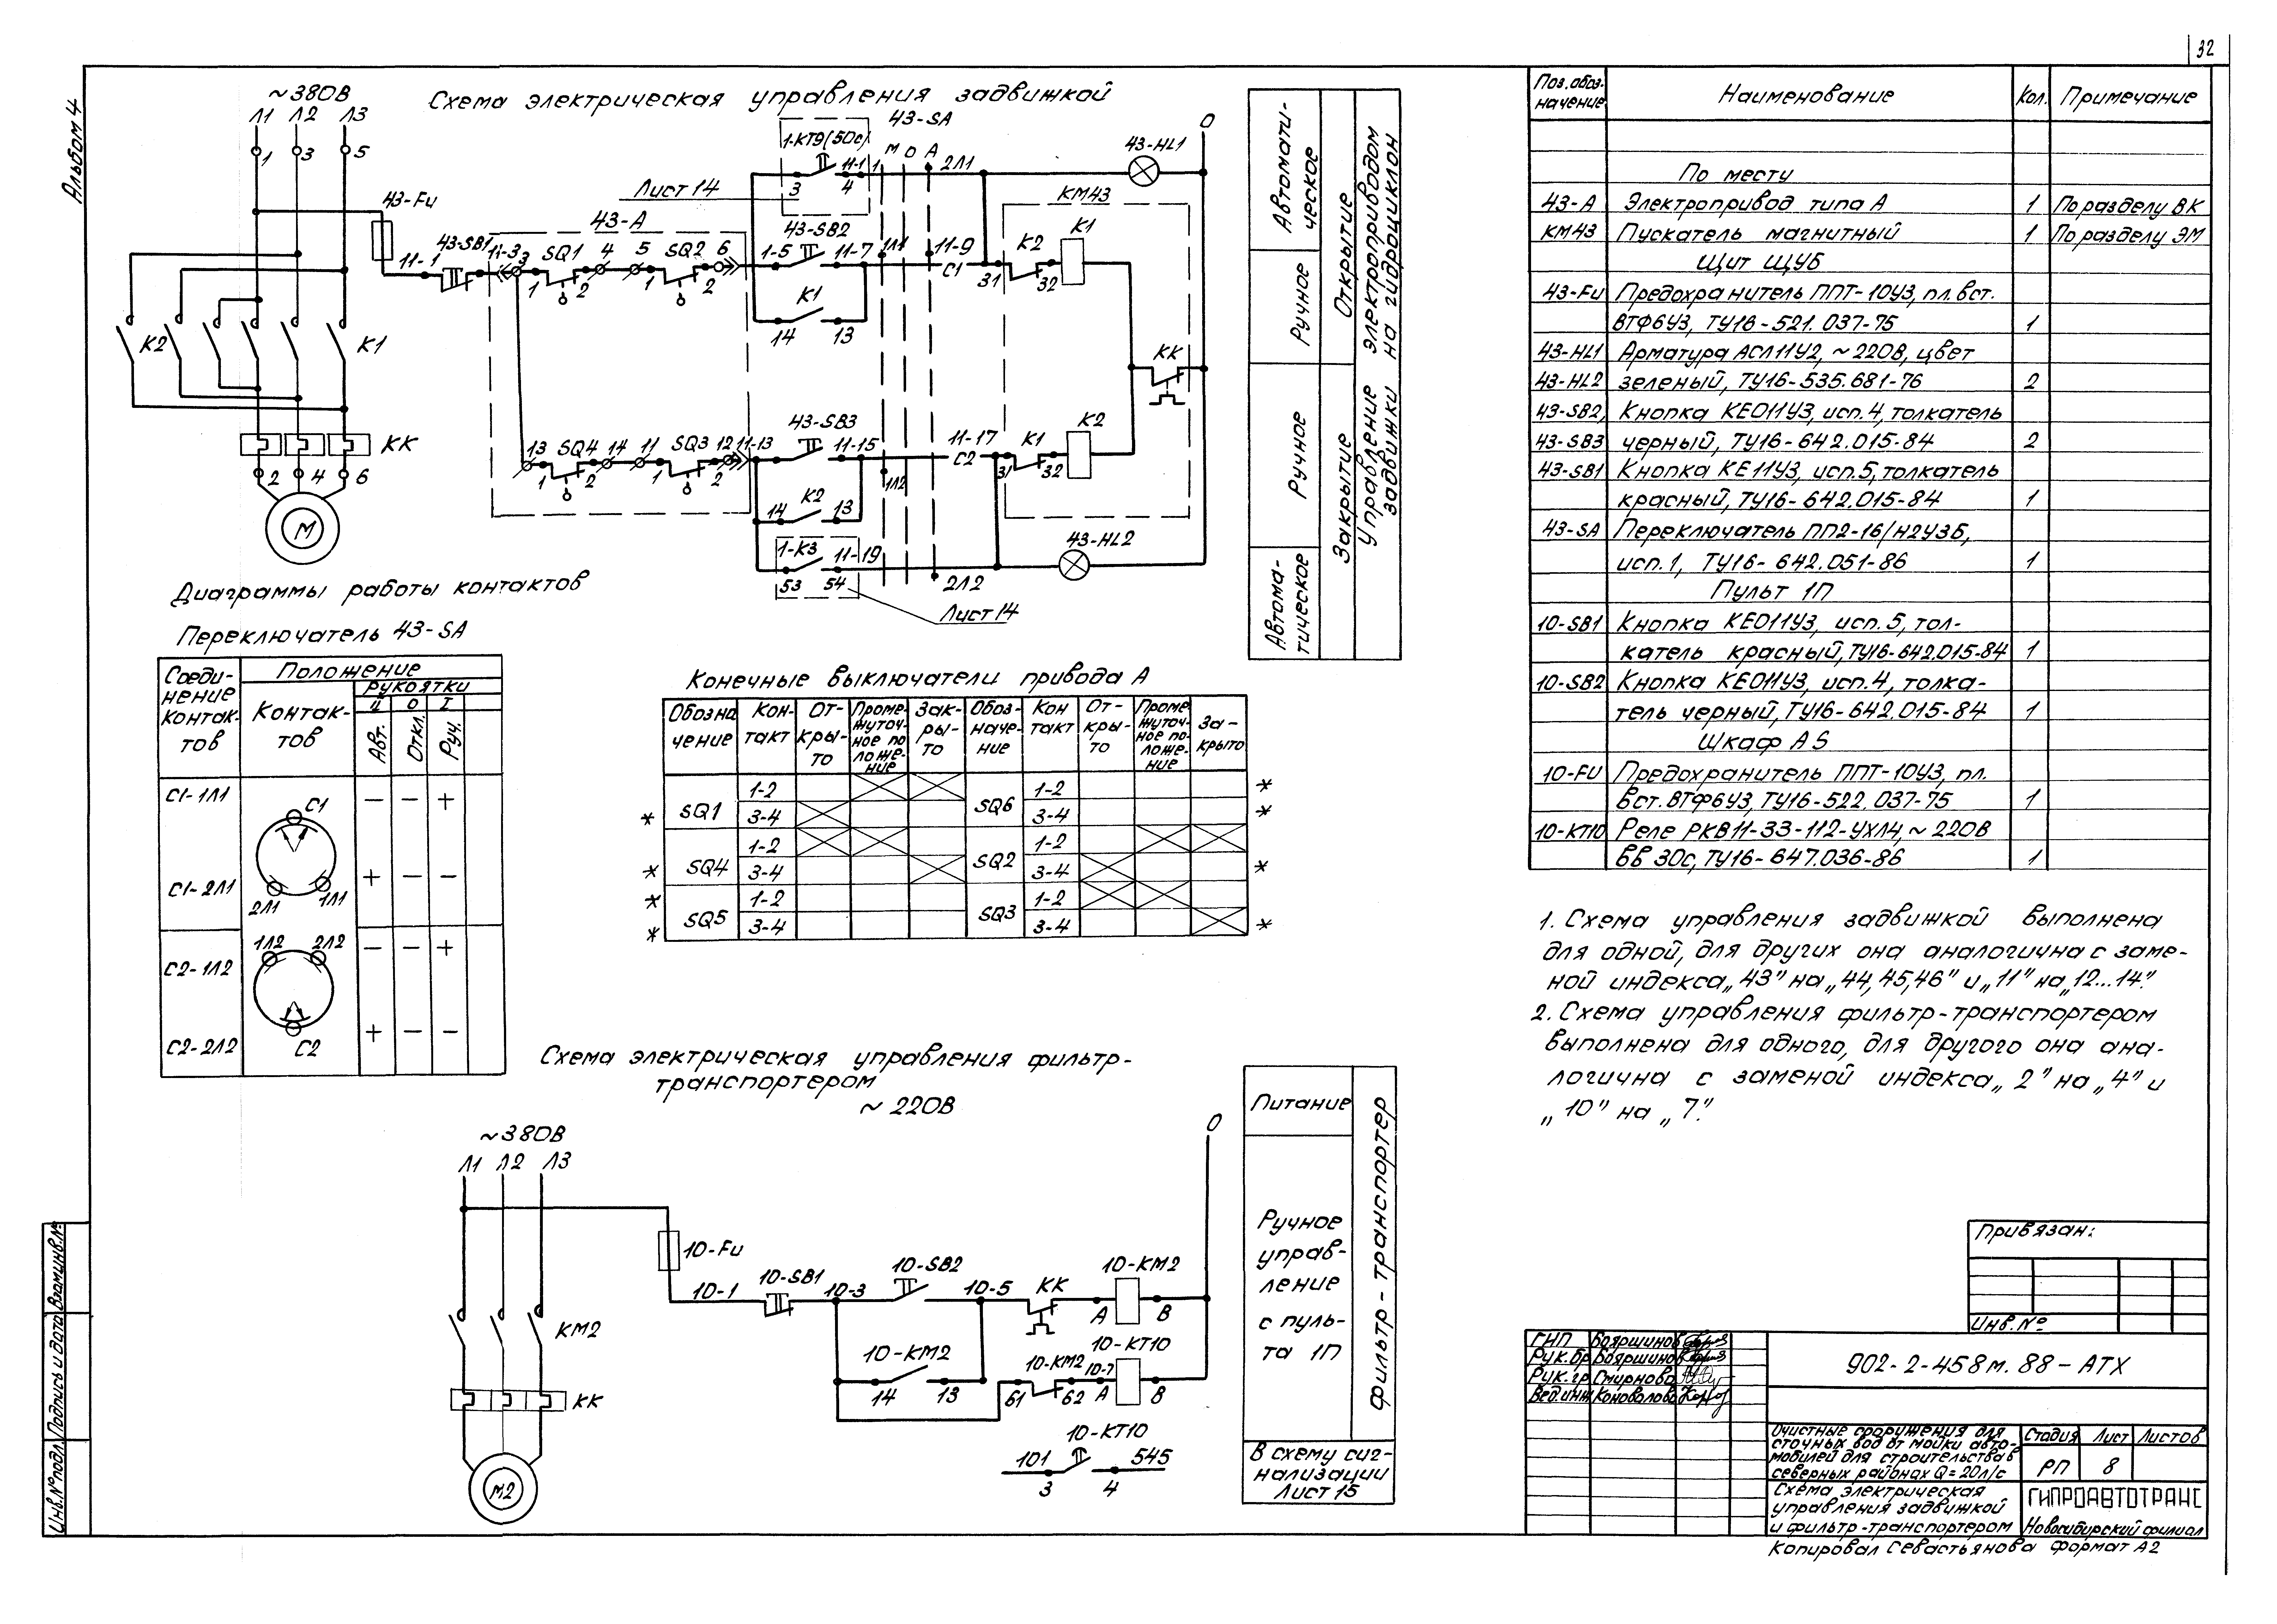 32
Альбом 4
Схема электрическая управления задвижкой
~380В
Л1 Л2 Л3
1 3 5
43-Fu
11-1
43-SB1
11-3
3
43-А
SQ1 4 5 SQ2 6
1 2 1 2
Лист 14
1-КТ9(50с)
3 4
11-1
43-SA
М О А
1
2Л1
43-SB2
1-5 11-7
1Л1
11-9
С1
К1
14 13
43-HL1
О
КМ43
К2 К1
31 32
КК
К2 К1
КК
2 4 6
М
13 SQ4 14 11 SQ3 12 11-13
1 2 1 2
43-SB3
11-15
1Л2
11-17
С2
К1 К2
31 32
К2
14 13
1-К3 11-19
53 54
2Л2
Лист 14
43-HL2
Автомати-
ческое
Ручное
Открытие
Ручное
Закрытие
Автома-
тическое
Управление электроприводом
задвижки на гидроциклон
Диаграммы работы контактов
Переключатель 43-SA
Соеди-
нение
контак-
тов
Контак-
тов
Положение
рукоятки
О I
Авт. Откл. Руч.
С1-1Л1 – – +
С1
2Л1 1Л1
С1-2Л1 + – –
1Л2 2Л2
С2-1Л2 – – +
С2
С2-2Л2 + – –
Конечные выключатели привода А
Обозна
чение
Кон-
такт
От-
кры-
то
Проме-
жуточ-
ное по
ложе-
ние
Зак-
ры-
то
Обоз-
наче-
ние
Кон
такт
От-
кры-
то
Проме
жуточ-
ное по-
ложе-
ние
За-
крыто
SQ1 1-2 SQ6 1-2 *
* 3-4 3-4 *
SQ4 1-2 SQ2 1-2
* 3-4 3-4 *
* SQ5 1-2 SQ3 1-2
* 3-4 3-4 *
Схема электрическая управления фильтр-
транспортером
~220В
~380В
Л1 Л2 Л3
О
10-Fu
10-1
10-SB1
10-3
10-SB2
10-5
КК
10-КМ2
А В
КМ2
10-КМ2
14 13
10-КМ2
61 62
10-7
10-КТ10
А В
КК
М2
101
10-КТ10
545
3 4
Питание
Ручное
управ-
ление
с пуль-
та 1П
Фильтр-транспортер
В схему сиг-
нализации
Лист 15
Поз.обоз-
начение
Наименование
Кол. Примечание
По месту
43-А Электропривод типа А 1 По разделу ВК
КМ43 Пускатель магнитный 1 По разделу ЭМ
Щит ЩУБ
43-Fu Предохранитель ППТ-10У3, пл.вст.
ВТФ6У3, ТУ16-521.037-75 1
43-HL1 Арматура АСЛ11У2, ~220В, цвет
43-HL2 зеленый, ТУ16-535.681-76 2
43-SB2, Кнопка КЕ011У3, исп.4, толкатель
43-SB3 черный, ТУ16-642.015-84 2
43-SB1 Кнопка КЕ11У3, исп.5, толкатель
красный, ТУ16-642.015-84 1
43-SA Переключатель ПП2-16/Н2У3Б,
исп.1, ТУ16-642.051-86 1
Пульт 1П
10-SB1 Кнопка КЕ011У3, исп.5, тол-
катель красный, ТУ16-642.015-84 1
10-SB2 Кнопка КЕ011У3, исп.4, толка-
тель черный, ТУ16-642.015-84 1
Шкаф АS
10-FU Предохранитель ППТ-10У3, пл.
вст. ВТФ6У3, ТУ16-522.037-75 1
10-КТ10 Реле РКВ11-33-112-УХЛ4, ~220В
вв 30с, ТУ16-647.036-86 1
1. Схема управления задвижкой выполнена
для одной, для других она аналогична с заме-
ной индекса „43" на „44,45,46" и „11" на „12...14".
2. Схема управления фильтр-транспортером
выполнена для одного, для другого она ана-
логична с заменой индекса „2" на „4" и
„10" на „7".
Привязан:
Инв.№
ГИП Бояршинов
Рук.бр Бояршинов
Рук.гр Смирнова
Вед.инж Коновалова
902-2-458м.88-АТХ
Очистные сооружения для
сточных вод от мойки авто-
мобилей для строительства в
северных районах Q=20л/с
Стадия Лист Листов
РП 8
Схема электрическая
управления задвижкой
и фильтр-транспортером
ГИПРОАВТОТРАНС
Новосибирский филиал
Копировал Севастьянова формат А2
Инв.№подл. Подпись и дата Взам.инв.№